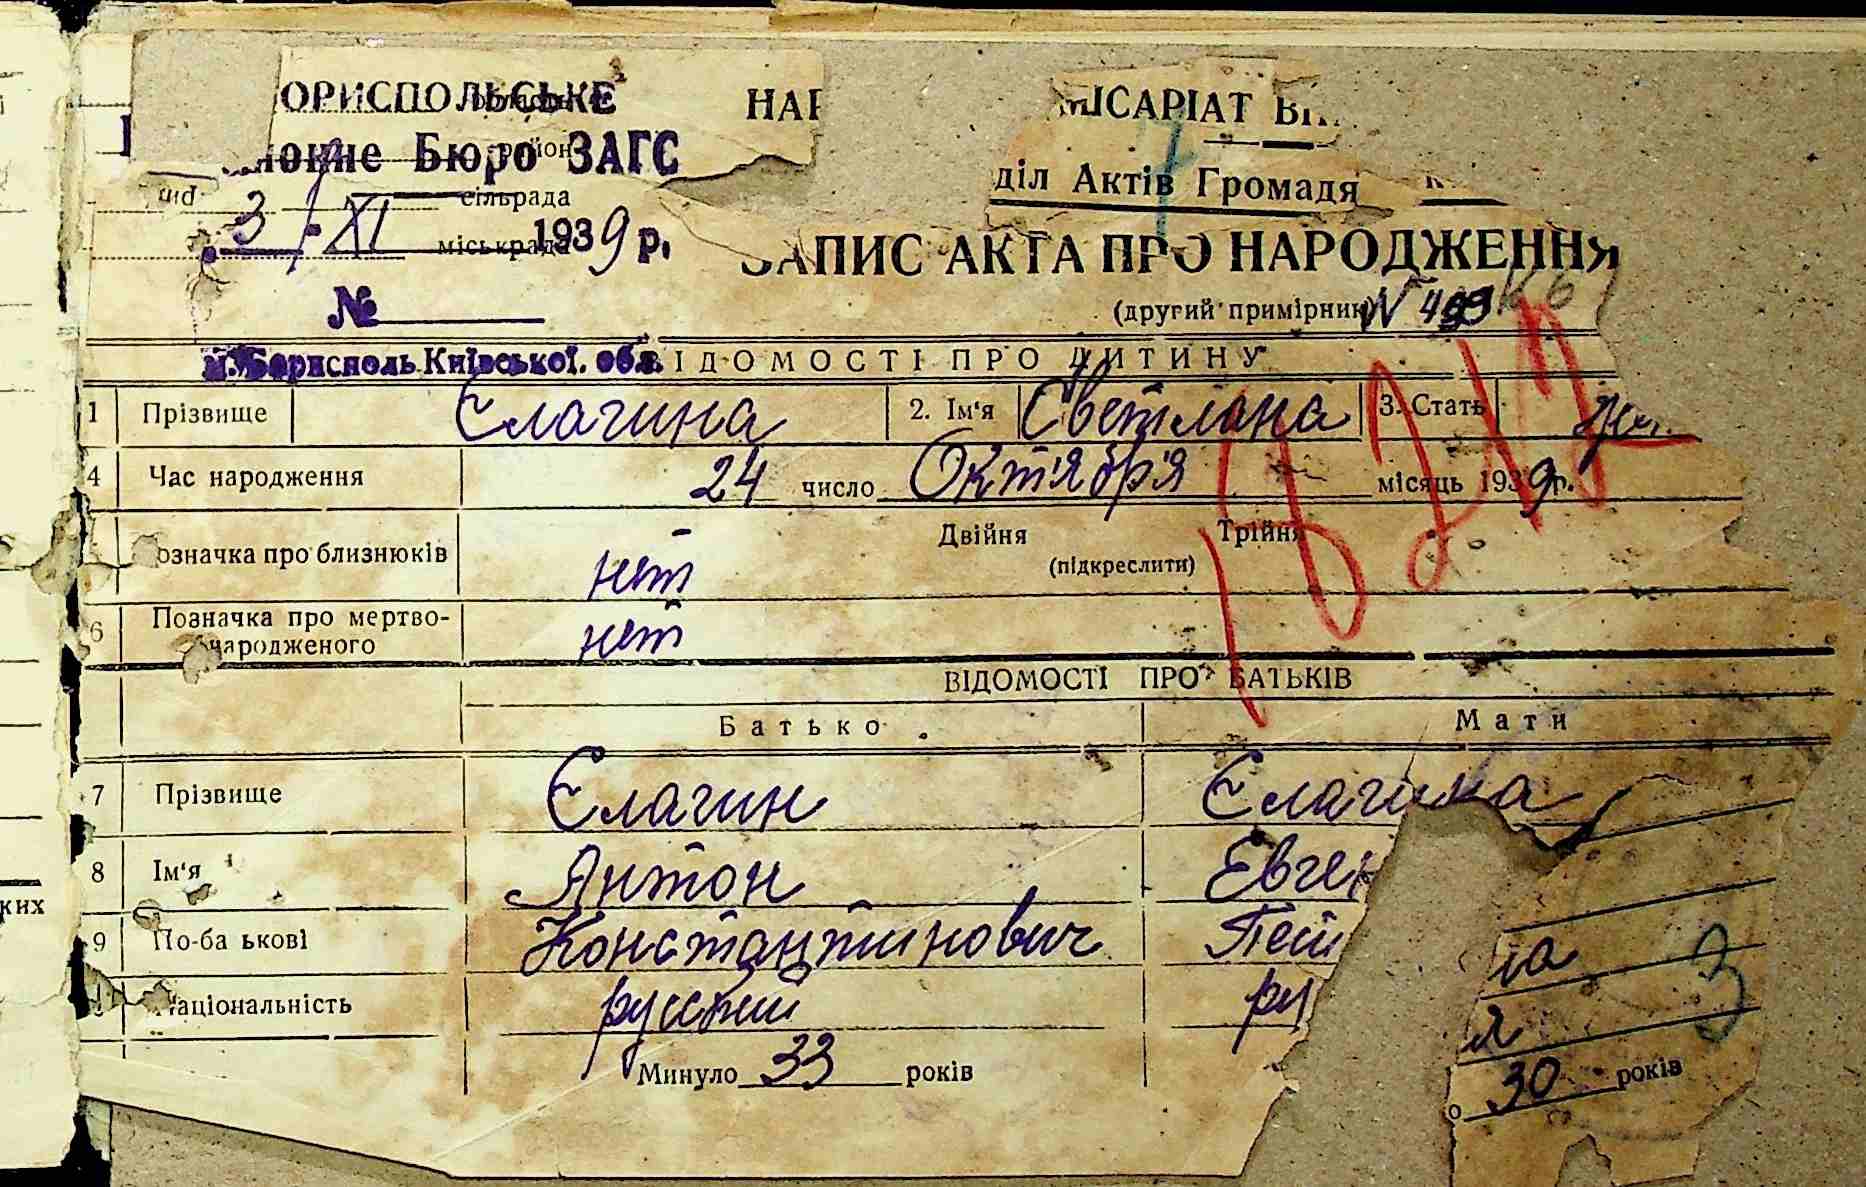 ОРИСПОЛЬСЬКЕ НАР МІСАРІАТ
Бюро ЗАГС
діл Актів Громадя
сільрада
3/XI міськрада 1939 р.
ЗАПИС АКТА ПРО НАРОДЖЕННЯ
№
(другий примірник) N 493
м. Бориспель Київської. обл. ВІДОМОСТІ ПРО ДИТИНУ
1 Прізвище Єлагина 2. Ім'я Светлана 3. Стать жен.
4 Час народження 24 число Октября місяць 1939 р.
означка про близнюків нет Двійня Трійня
(підкреслити)
6 Позначка про мертво-
народженого нет
ВІДОМОСТІ ПРО БАТЬКІВ
Батько Мати
7 Прізвище Єлагин Єлагина
8 Ім'я Антон Евген
9 По-ба ькові Константинович Пет на
Національність русский ру я
Минуло 33 років о 30 років
ких
3